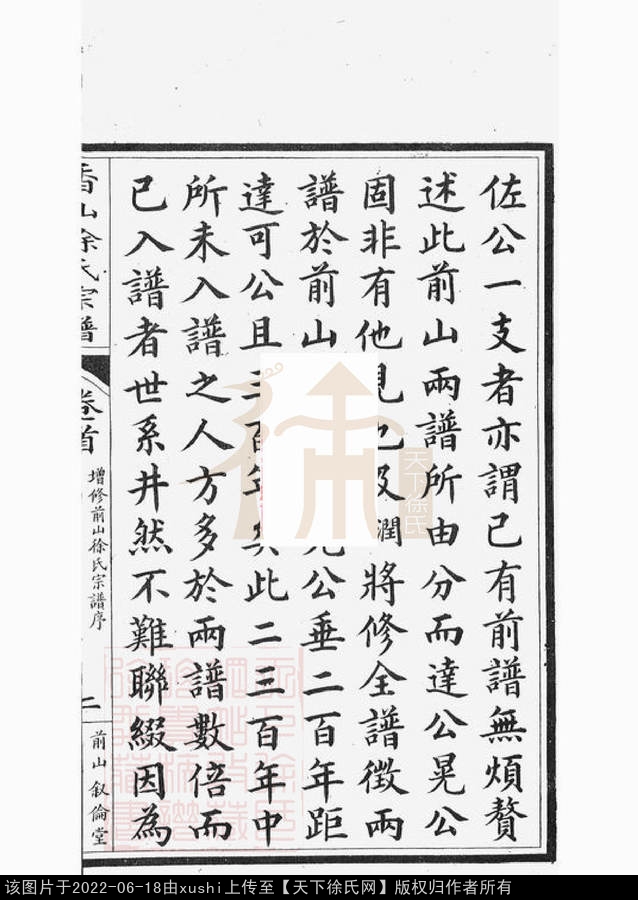 佐公一支者亦謂已有前譜無煩贅
述此前山兩譜所由分而達公晃公
固非有他見也及潤將修全譜徵兩
譜於前山公垂二百年距
達可公且三百年矣此二三百年中
所未入譜之人方多於兩譜數倍而
已入譜者世系井然不難聯綴因為
香山徐氏宗譜
卷首
增修前山徐氏宗譜序
二
前山 叙倫堂
徐
天下徐氏
该图片于2022-06-18由xushi上传至【天下徐氏网】版权归作者所有